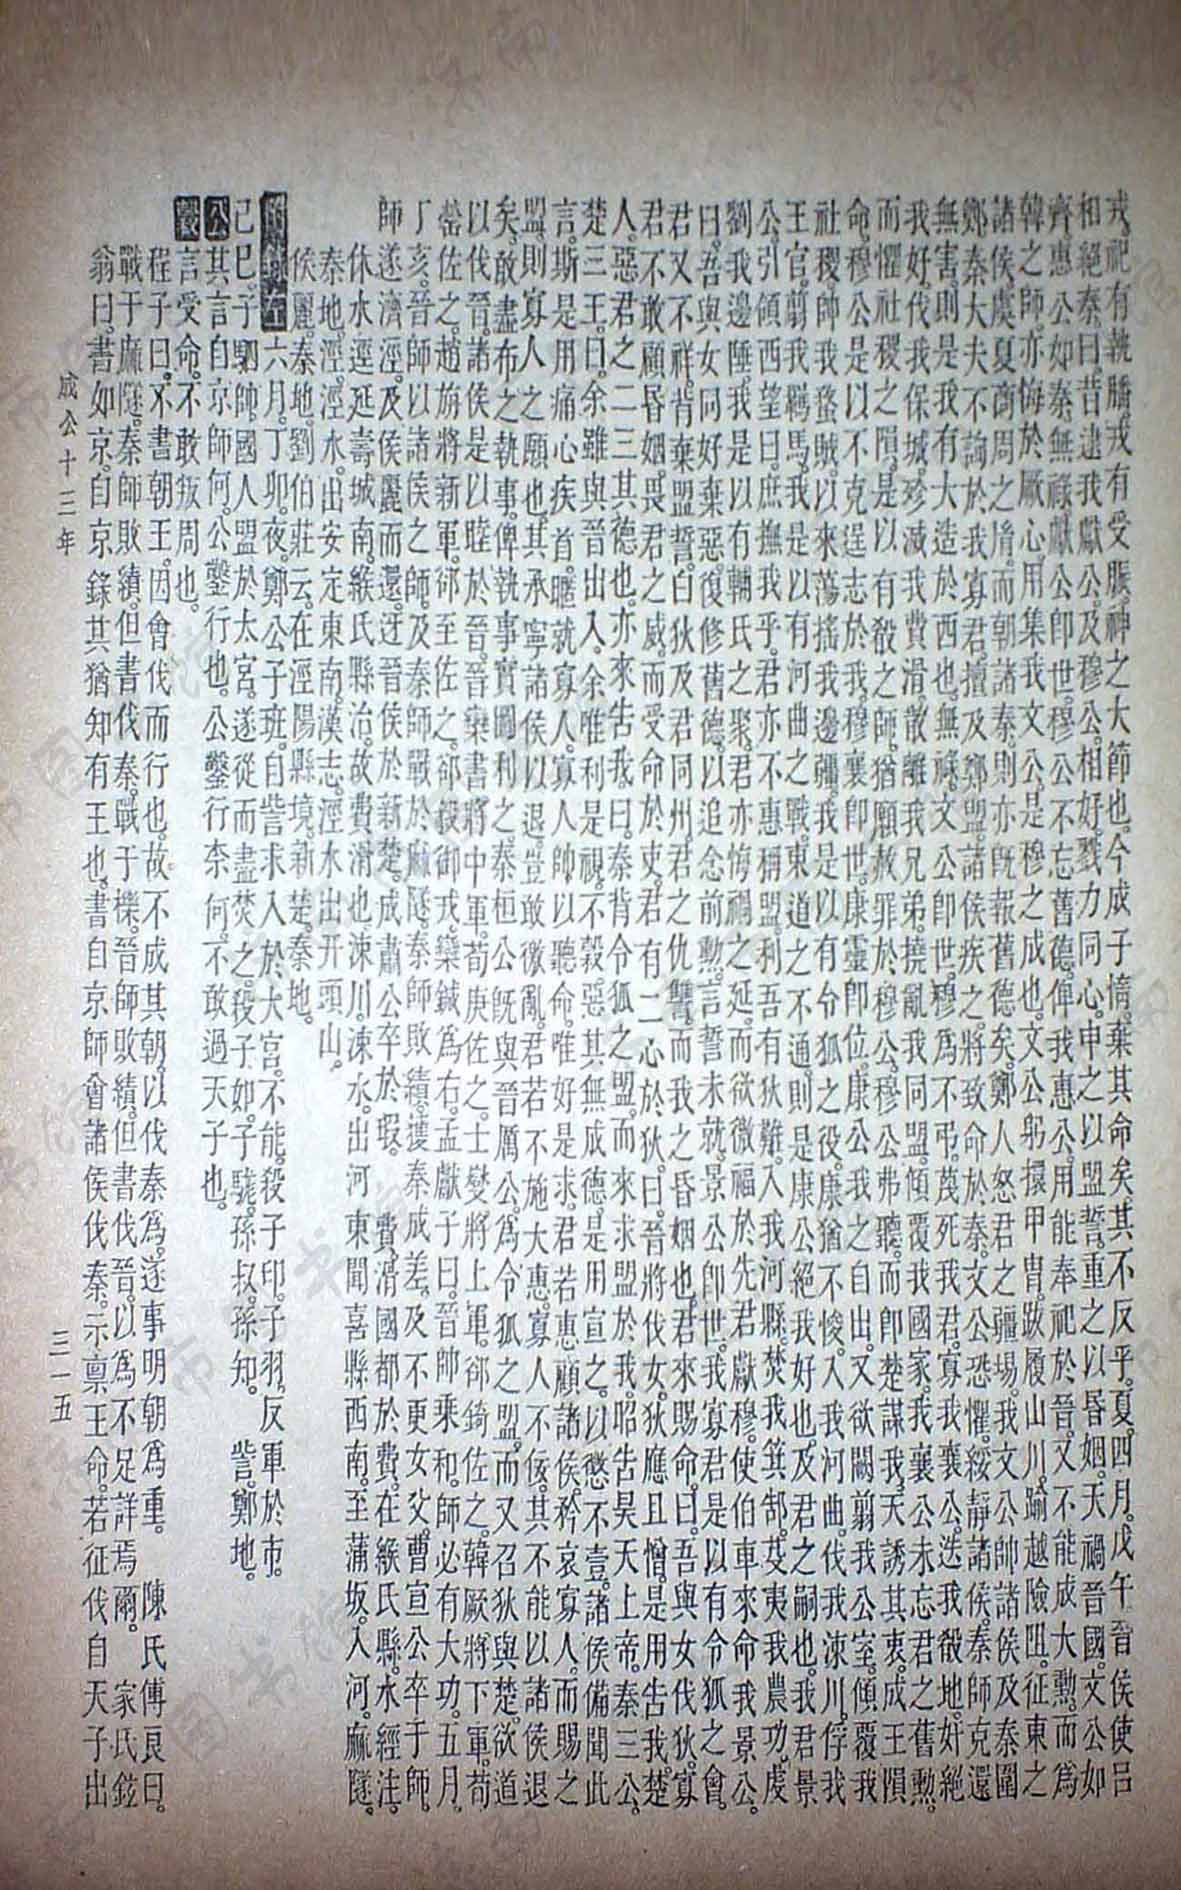 戎祀有執膰戎有受脤神之大節也今成子惰棄其命矣其不反乎夏四月戊午晉侯使呂
相絕秦曰昔逮我獻公及穆公相好戮力同心申之以盟誓重之以昏姻天禍晉國文公如
齊惠公如秦無祿獻公卽世穆公不忘舊德俾我惠公用能奉祀於晉又不能成大勲而爲
韓之師亦悔於厥心用集我文公是穆之成也文公躬擐甲冑跋履山川踰越險阻征東之
諸侯虞夏商周之胄而朝諸秦則亦旣報舊德矣鄭人怒君之疆埸我文公帥諸侯及秦圍
鄭秦大夫不詢於我寡君擅及鄭盟諸侯疾之將致命於秦文公恐懼綏靜諸侯秦師克還
無害則是我有大造於西也無祿文公卽世穆爲不弔蔑死我君寡我襄公迭我殽地奸絕
我好伐我保城殄滅我費滑散離我兄弟撓亂我同盟傾覆我國家我襄公未忘君之舊勲
而懼社稷之隕是以有殽之師猶願赦罪於穆公穆公弗聽而卽楚謀我天誘其衷成王隕
命穆公是以不克逞志於我穆襄卽世康靈卽位康公我之自出又欲闕翦我公室傾覆我
社稷帥我蝥賊以來蕩搖我邊疆我是以有令狐之役康猶不悛入我河曲伐我涑川俘我
王官翦我羈馬我是以有河曲之戰東道之不通則是康公絕我好也及君之嗣也我君景
公引領西望曰庶撫我乎君亦不惠稱盟利吾有狄難入我河縣焚我箕郜芟夷我農功虔
劉我邊陲我是以有輔氏之聚君亦悔禍之延而欲徼福於先君獻穆使伯車來命我景公
曰吾與女同好棄惡復修舊德以追念前勲言誓未就景公卽世我寡君是以有令狐之會
君又不祥背棄盟誓白狄及君同州君之仇讐而我之昏姻也君來賜命曰吾與女伐狄寡
君不敢顧昏姻畏君之威而受命於吏君有二心於狄曰晉將伐女狄應且憎是用告我楚
人惡君之二三其德也亦來告我曰秦背令狐之盟而來求盟於我昭告昊天上帝秦三公
楚三王曰余雖與晉出入余唯利是視不穀惡其無成德是用宣之以懲不壹諸侯備聞此
言斯是用痛心疾首暱就寡人寡人帥以聽命唯好是求君若惠顧諸侯矜哀寡人而賜之
盟則寡人之願也其承寧諸侯以退豈敢徼亂君若不施大惠寡人不佞其不能以諸侯退
矣敢盡布之執事俾執事實圖利之秦桓公旣與晉厲公爲令狐之盟而又召狄與楚欲道
以伐晉諸侯是以睦於晉晉欒書將中軍荀庚佐之士燮將上軍郤錡佐之韓厥將下軍荀
罃佐之趙旃將新軍郤至佐之郤毅御戎欒鍼爲右孟獻子曰晉帥乘和師必有大功五月
丁亥晉師以諸侯之師及秦師戰於麻隧秦師敗績獲秦成差及不更女父曹宣公卒于師
師遂濟涇及侯麗而還迓晉侯於新楚成肅公卒於瑕 費滑國都於費在緱氏縣水經注
休水逕延壽城南緱氏縣治故費滑也涑川涑水出河東聞喜縣西南至蒲坂入河麻隧
秦地涇涇水出安定東南漢志涇水出幵頭山
侯麗秦地劉伯莊云在涇陽縣境新楚秦地
附錄左六月丁卯夜鄭公子班自訾求入於大宮不能殺子印子羽反軍於市
己巳子駟帥國人盟於太宮遂從而盡焚之殺子如子駹孫叔孫知 訾鄭地
公其言自京師何公鑿行也公鑿行柰何不敢過天子也
穀言受命不敢叛周也
程子曰不書朝王因會伐而行也故不成其朝以伐秦爲遂事明朝爲重 陳氏傅良曰
戰于麻隧秦師敗績但書伐秦戰于櫟晉師敗績但書伐晉以爲不足詳焉爾 家氏鉉
翁曰書如京自京錄其猶知有王也書自京師會諸侯伐秦示禀王命若征伐自天子出
成公十三年
三一五